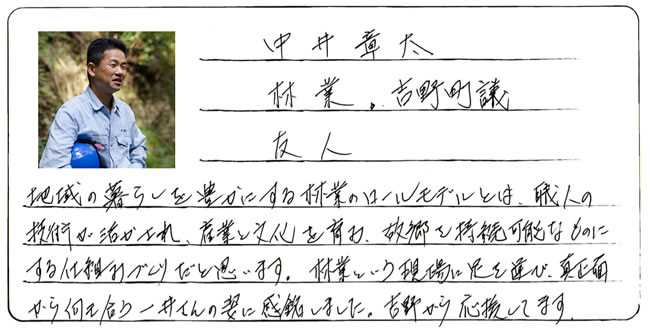 中井章太
林業。吉野町議
友人
地域の暮らしを豊かにする林業のロールモデルとは、職人の
技術が活かされ、産業と文化を育み、故郷を持続可能なものに
する仕組みづくりだと思います。林業という現場に足を運び、真正面
から向き合う 井さんの姿に感銘しました。吉野から応援してます。